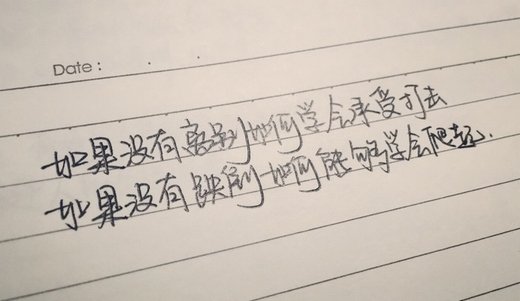 Date :
如果没有离别 如何学会承受打击
如果没有跌倒 如何能够学会爬起